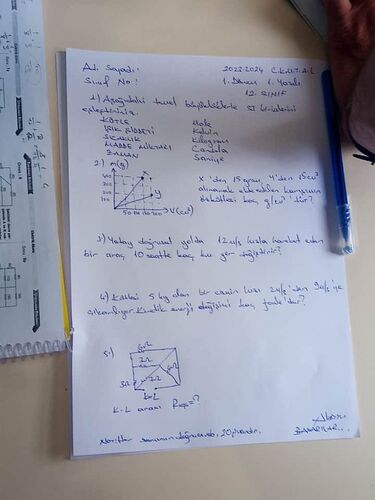 Adı Soyadı:
Sınıf No:
2023-2024
1. Dönem 1. Yazılı
12. SINIF
1) Aşağıdaki temel büyüklüklerle SI birimlerini
eşleştiriniz.
KÜTLE Mole
IŞIK ŞİDDETİ Kelvin
SICAKLIK Kilogram
MADDE MİKTARI Candela
ZAMAN Saniye
2) m(g)
400
300
200
100
X
Y
50 100 150 200 V(cm³)
X'den 15 gram, Y'den 15 cm³
alınarak elde edilen karışımın
özkütlesi kaç g/cm³ 'tür?
3) Yatay doğrusal yolda 12 m/s hızla hareket eden
bir araç 10 saatte kaç km yer değiştirir?
4) Kütlesi 5 kg olan bir cismin hızı 2 m/s 'den 9 m/s 'ye
çıkarılıyor. Kinetik enerji değişimi kaç joule'dur?
5)
6Ω
2Ω
3Ω
2Ω
6Ω
K L
K-L arası Reş=?
Not: Her sorunun doğru cevabı, 20 puandır.